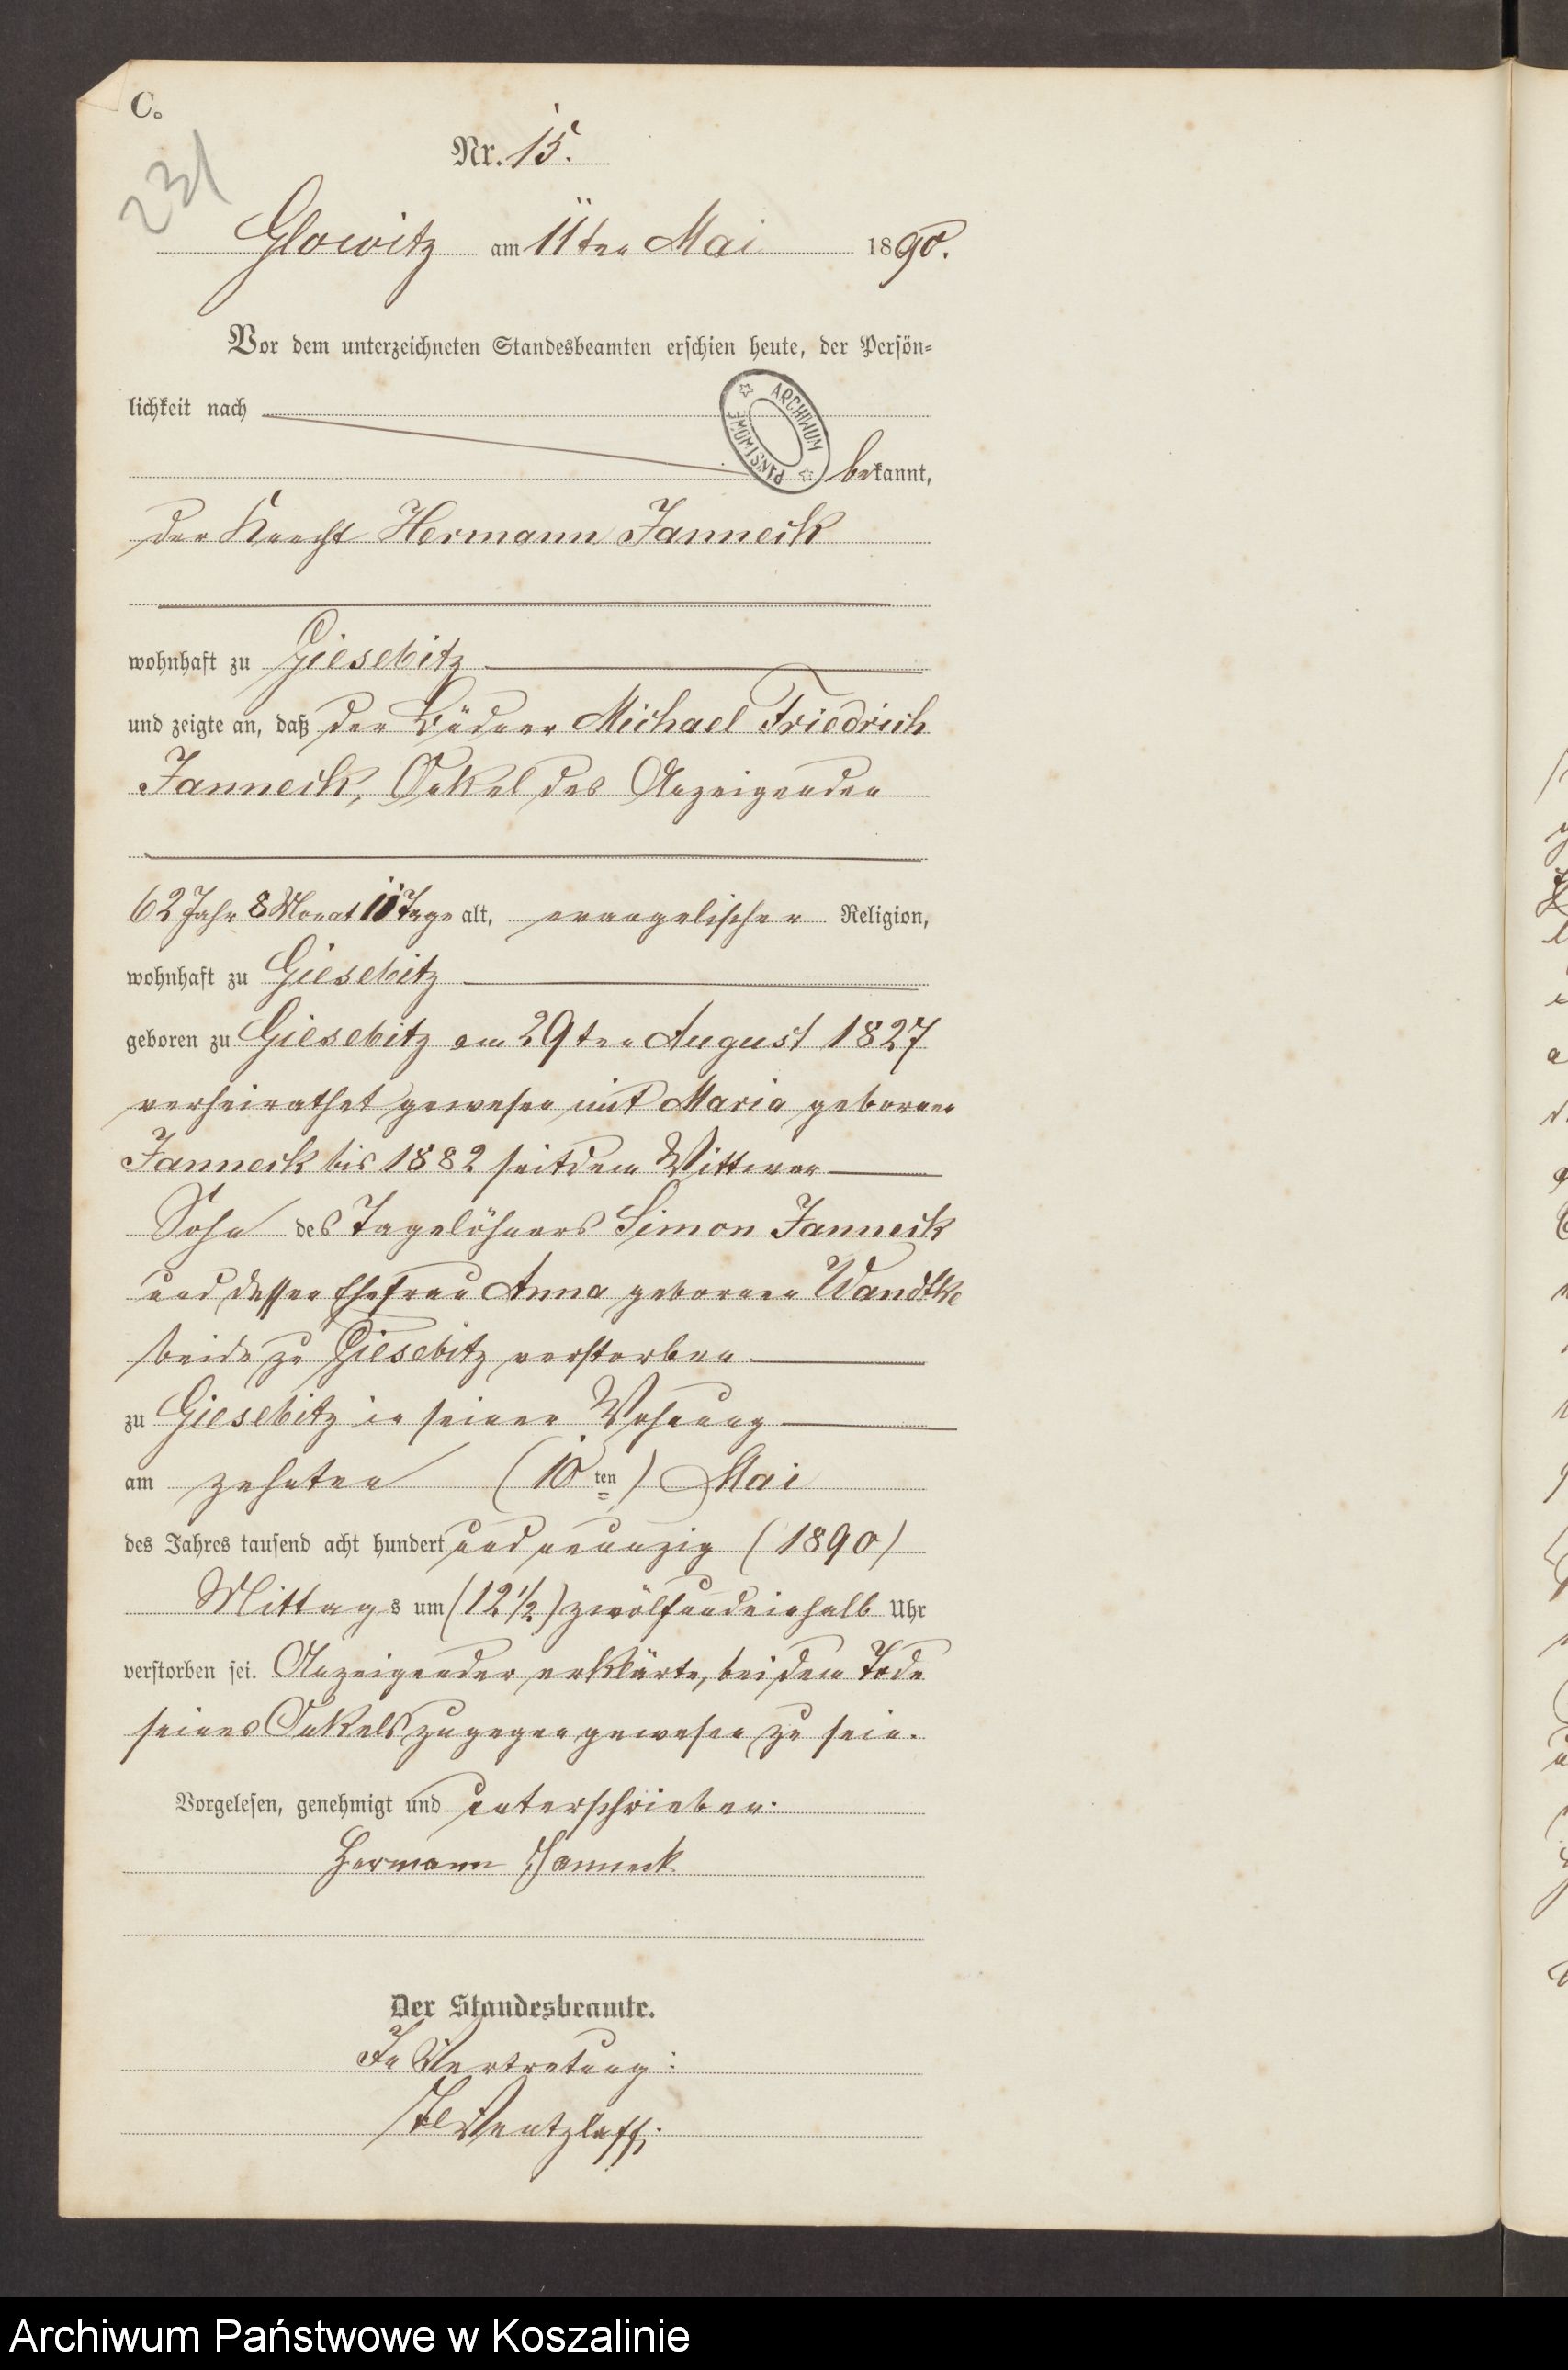 C.
231
Nr. 15.
Glowitz am 11ten Mai 1890.
Vor dem unterzeichneten Standesbeamten erschien heute, der Persön-
lichkeit nach
ARCHIWUM PAŃSTWOWE
bekannt,
der Knecht Hermann Janneck
wohnhaft zu Giesebitz
und zeigte an, daß der Büdner Michael Friedrich
Janneck, Onkel des Anzeigenden
62 Jahr 8 Monat 11 Tage alt, evangelischer Religion,
wohnhaft zu Giesebitz
geboren zu Giesebitz am 29ten August 1827
verheirathet gewesen mit Maria geborenen
Janneck bis 1882 seitdem Wittwer
Sohn des Tagelöhners Simon Janneck
und dessen Ehefrau Anna geborenen Wandtke
beide zu Giesebitz verstorben
zu Giesebitz in seiner Wohnung
am zehnten (10ten) Mai
des Jahres tausend acht hundert und neunzig (1890)
Mittags um (12 1/2) zwölfundeinhalb Uhr
verstorben sei. Anzeigender erklärte, bei dem Tode
seines Onkels zugegen gewesen zu sein.
Vorgelesen, genehmigt und unterschrieben.
Hermann Janneck
Der Standesbeamte.
In Vertretung:
Wentzlaff.
Archiwum Państwowe w Koszalinie